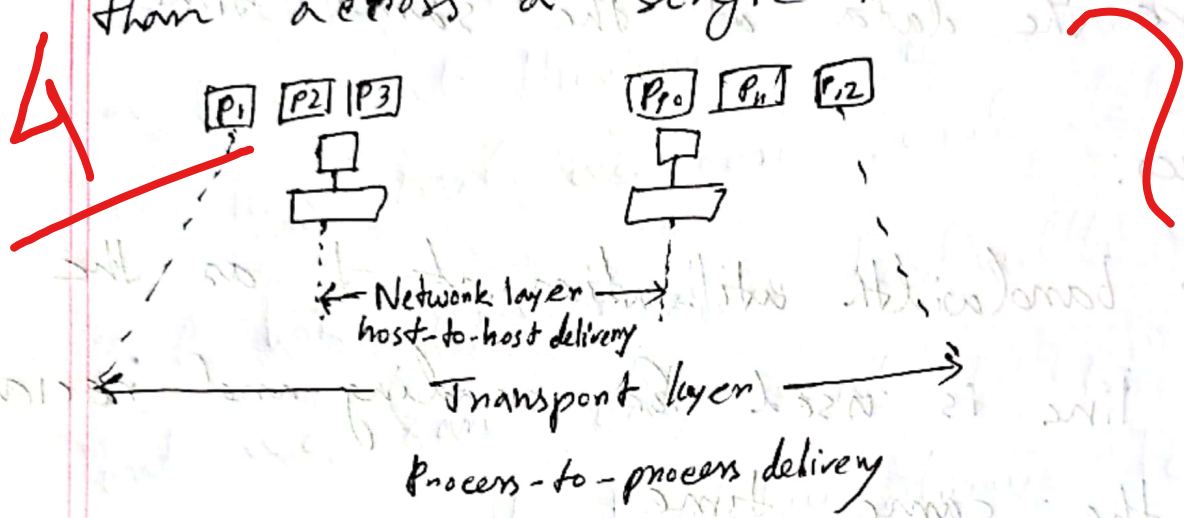 than across a single
4
P1 P2 P3 P10 P11 P12
Network layer
host-to-host delivery
Transport layer
Process-to-process delivery